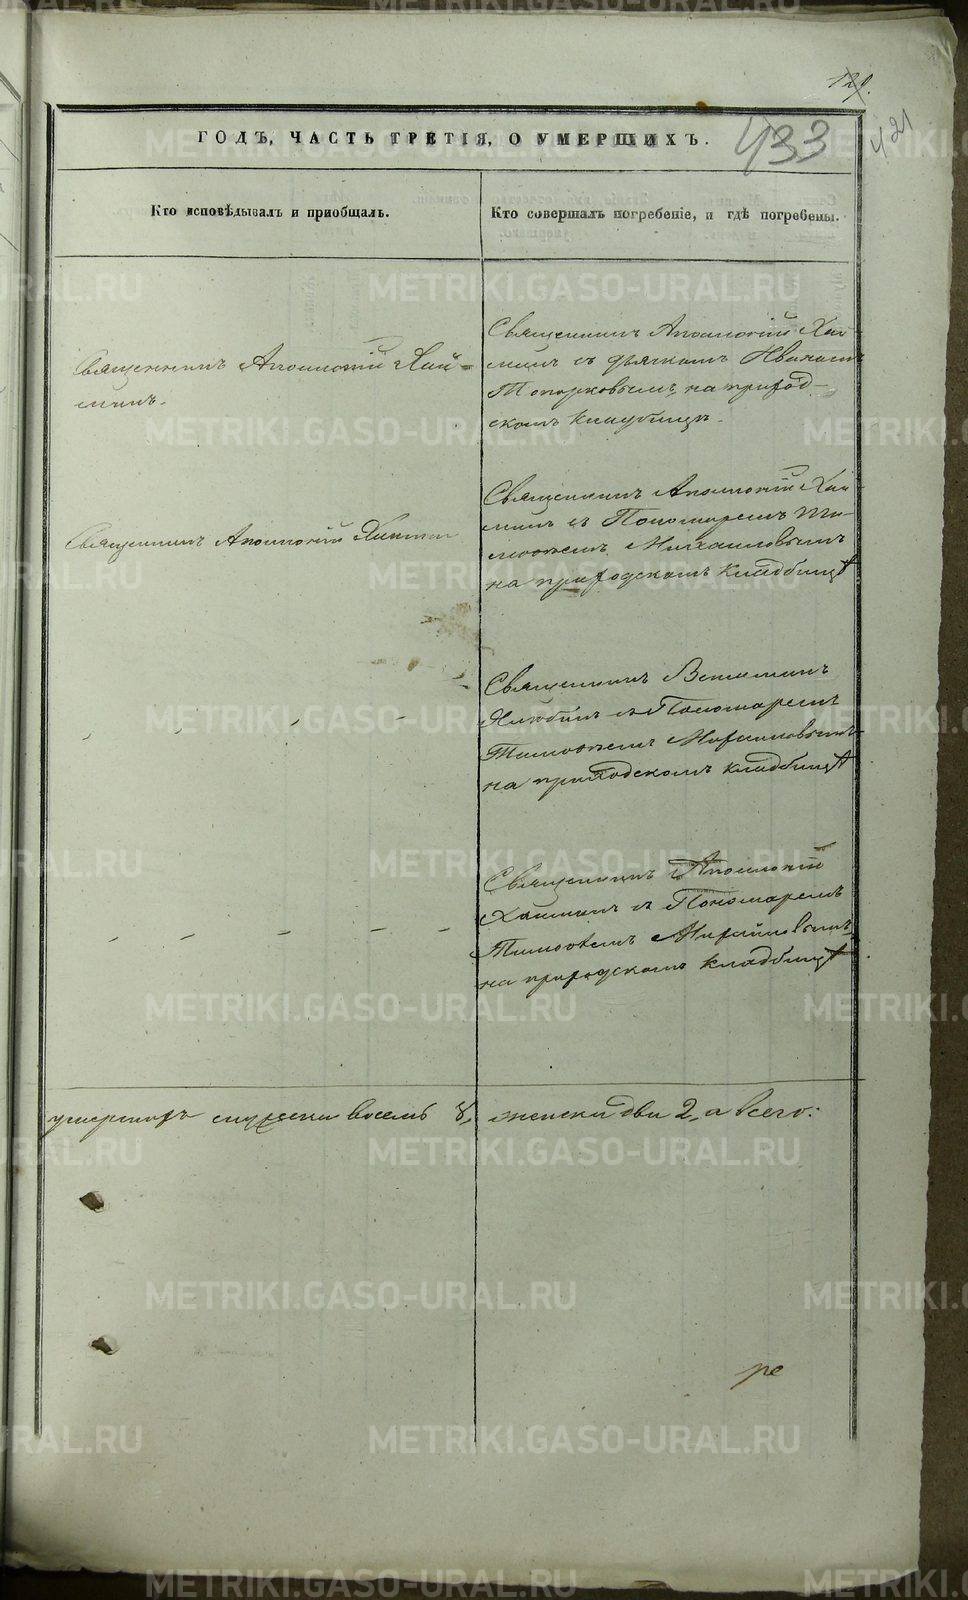 129.
433
421
ГОДЪ, ЧАСТЬ ТРЕТІЯ, О УМЕРШИХЪ.
Кто исповѣдывалъ и приобщалъ.
Кто совершалъ погребеніе, и гдѣ погребены.
Священникъ Аполлоній
Священникъ Аполлоній
съ дьячкомъ Иваномъ
Топорковымъ, на приход-
скомъ кладбищѣ.
Священникъ Аполлоній
Священникъ Аполлоній
съ Пономаремъ Ти-
моѳеемъ Михаиловымъ
на приходскомъ кладбищѣ
Священникъ Веніаминъ
съ Пономаремъ
Тимоѳеемъ Михаиловымъ
на приходскомъ кладбищѣ
Священникъ Аполлоній
съ Пономаремъ
Тимоѳеемъ Михайловымъ
на приходскомъ кладбищѣ
умершихъ мужеска восемь 8,
женска два 2, а всего:
METRIKI.GASO-URAL.RU